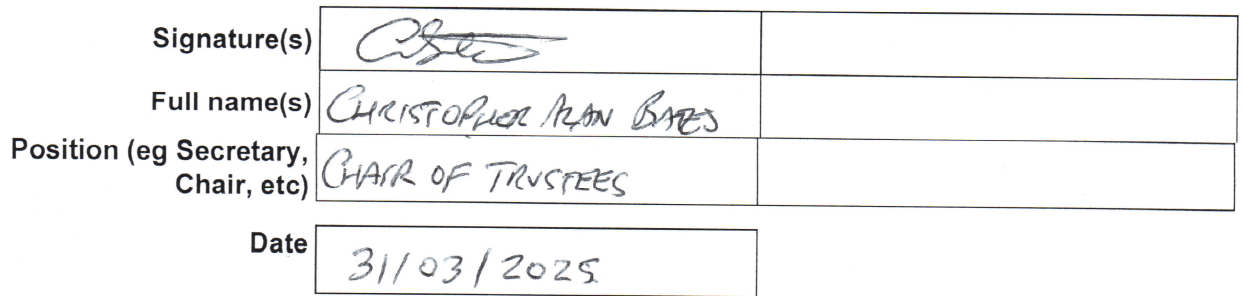 Signature(s)
Full name(s) CHRISTOPHER ALAN BATES
Position (eg Secretary,
Chair, etc) CHAIR OF TRUSTEES
Date 31/03/2025